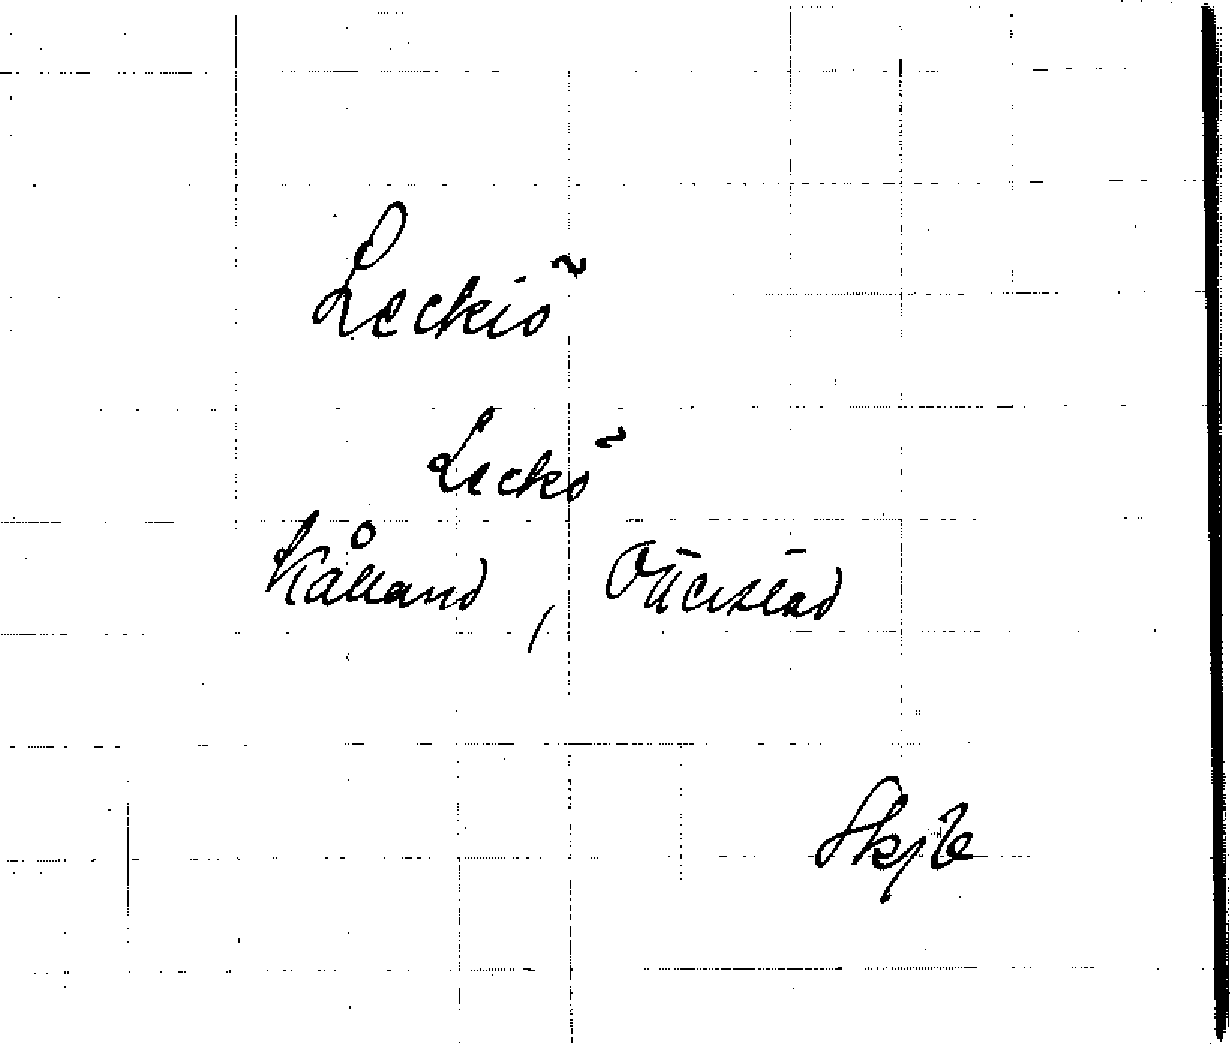 Leckiö
Leckö
Kålland, Otterstad
Skjb